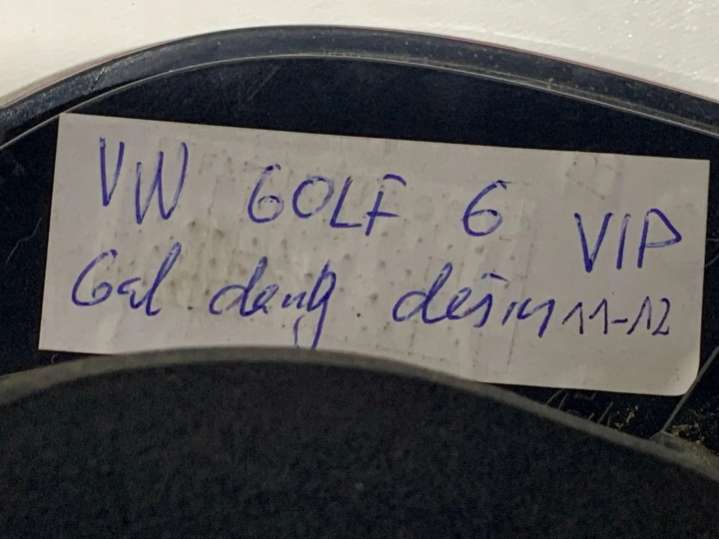 VW GOLF 6 VIP
Gal. dang. dešin 11-12